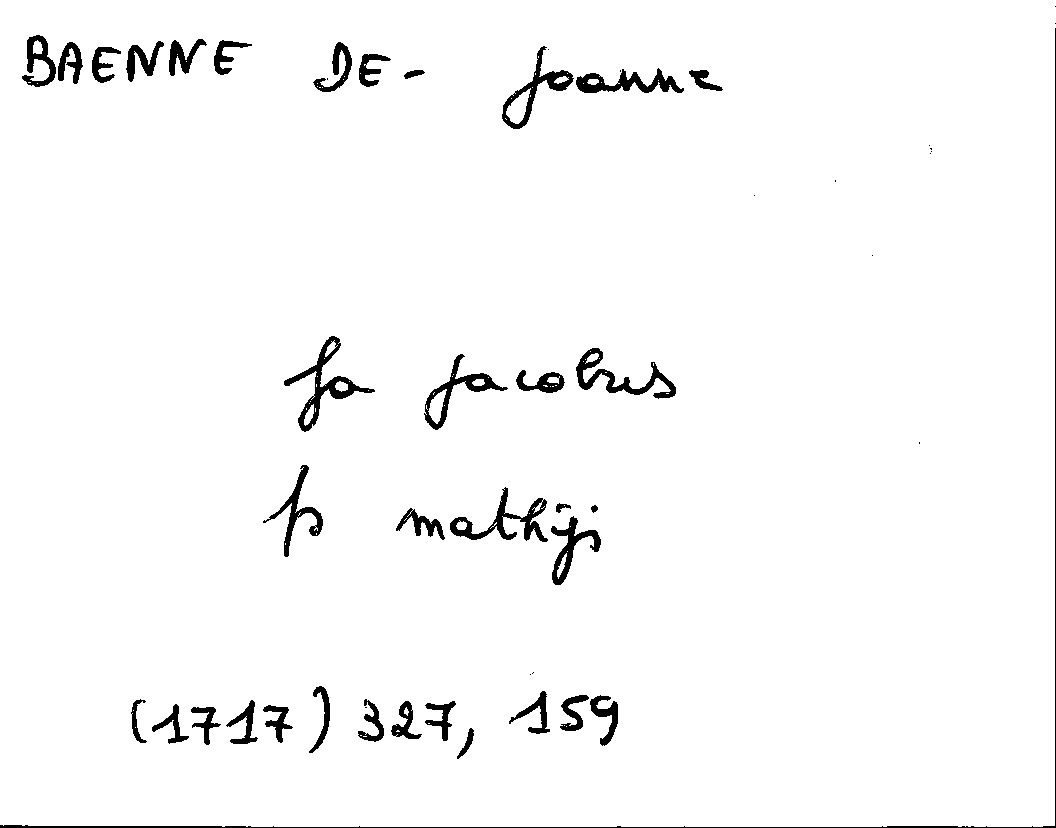 BAENNE DE - Joanne
fa Jacobus
p mathijs
(1717) 327, 159